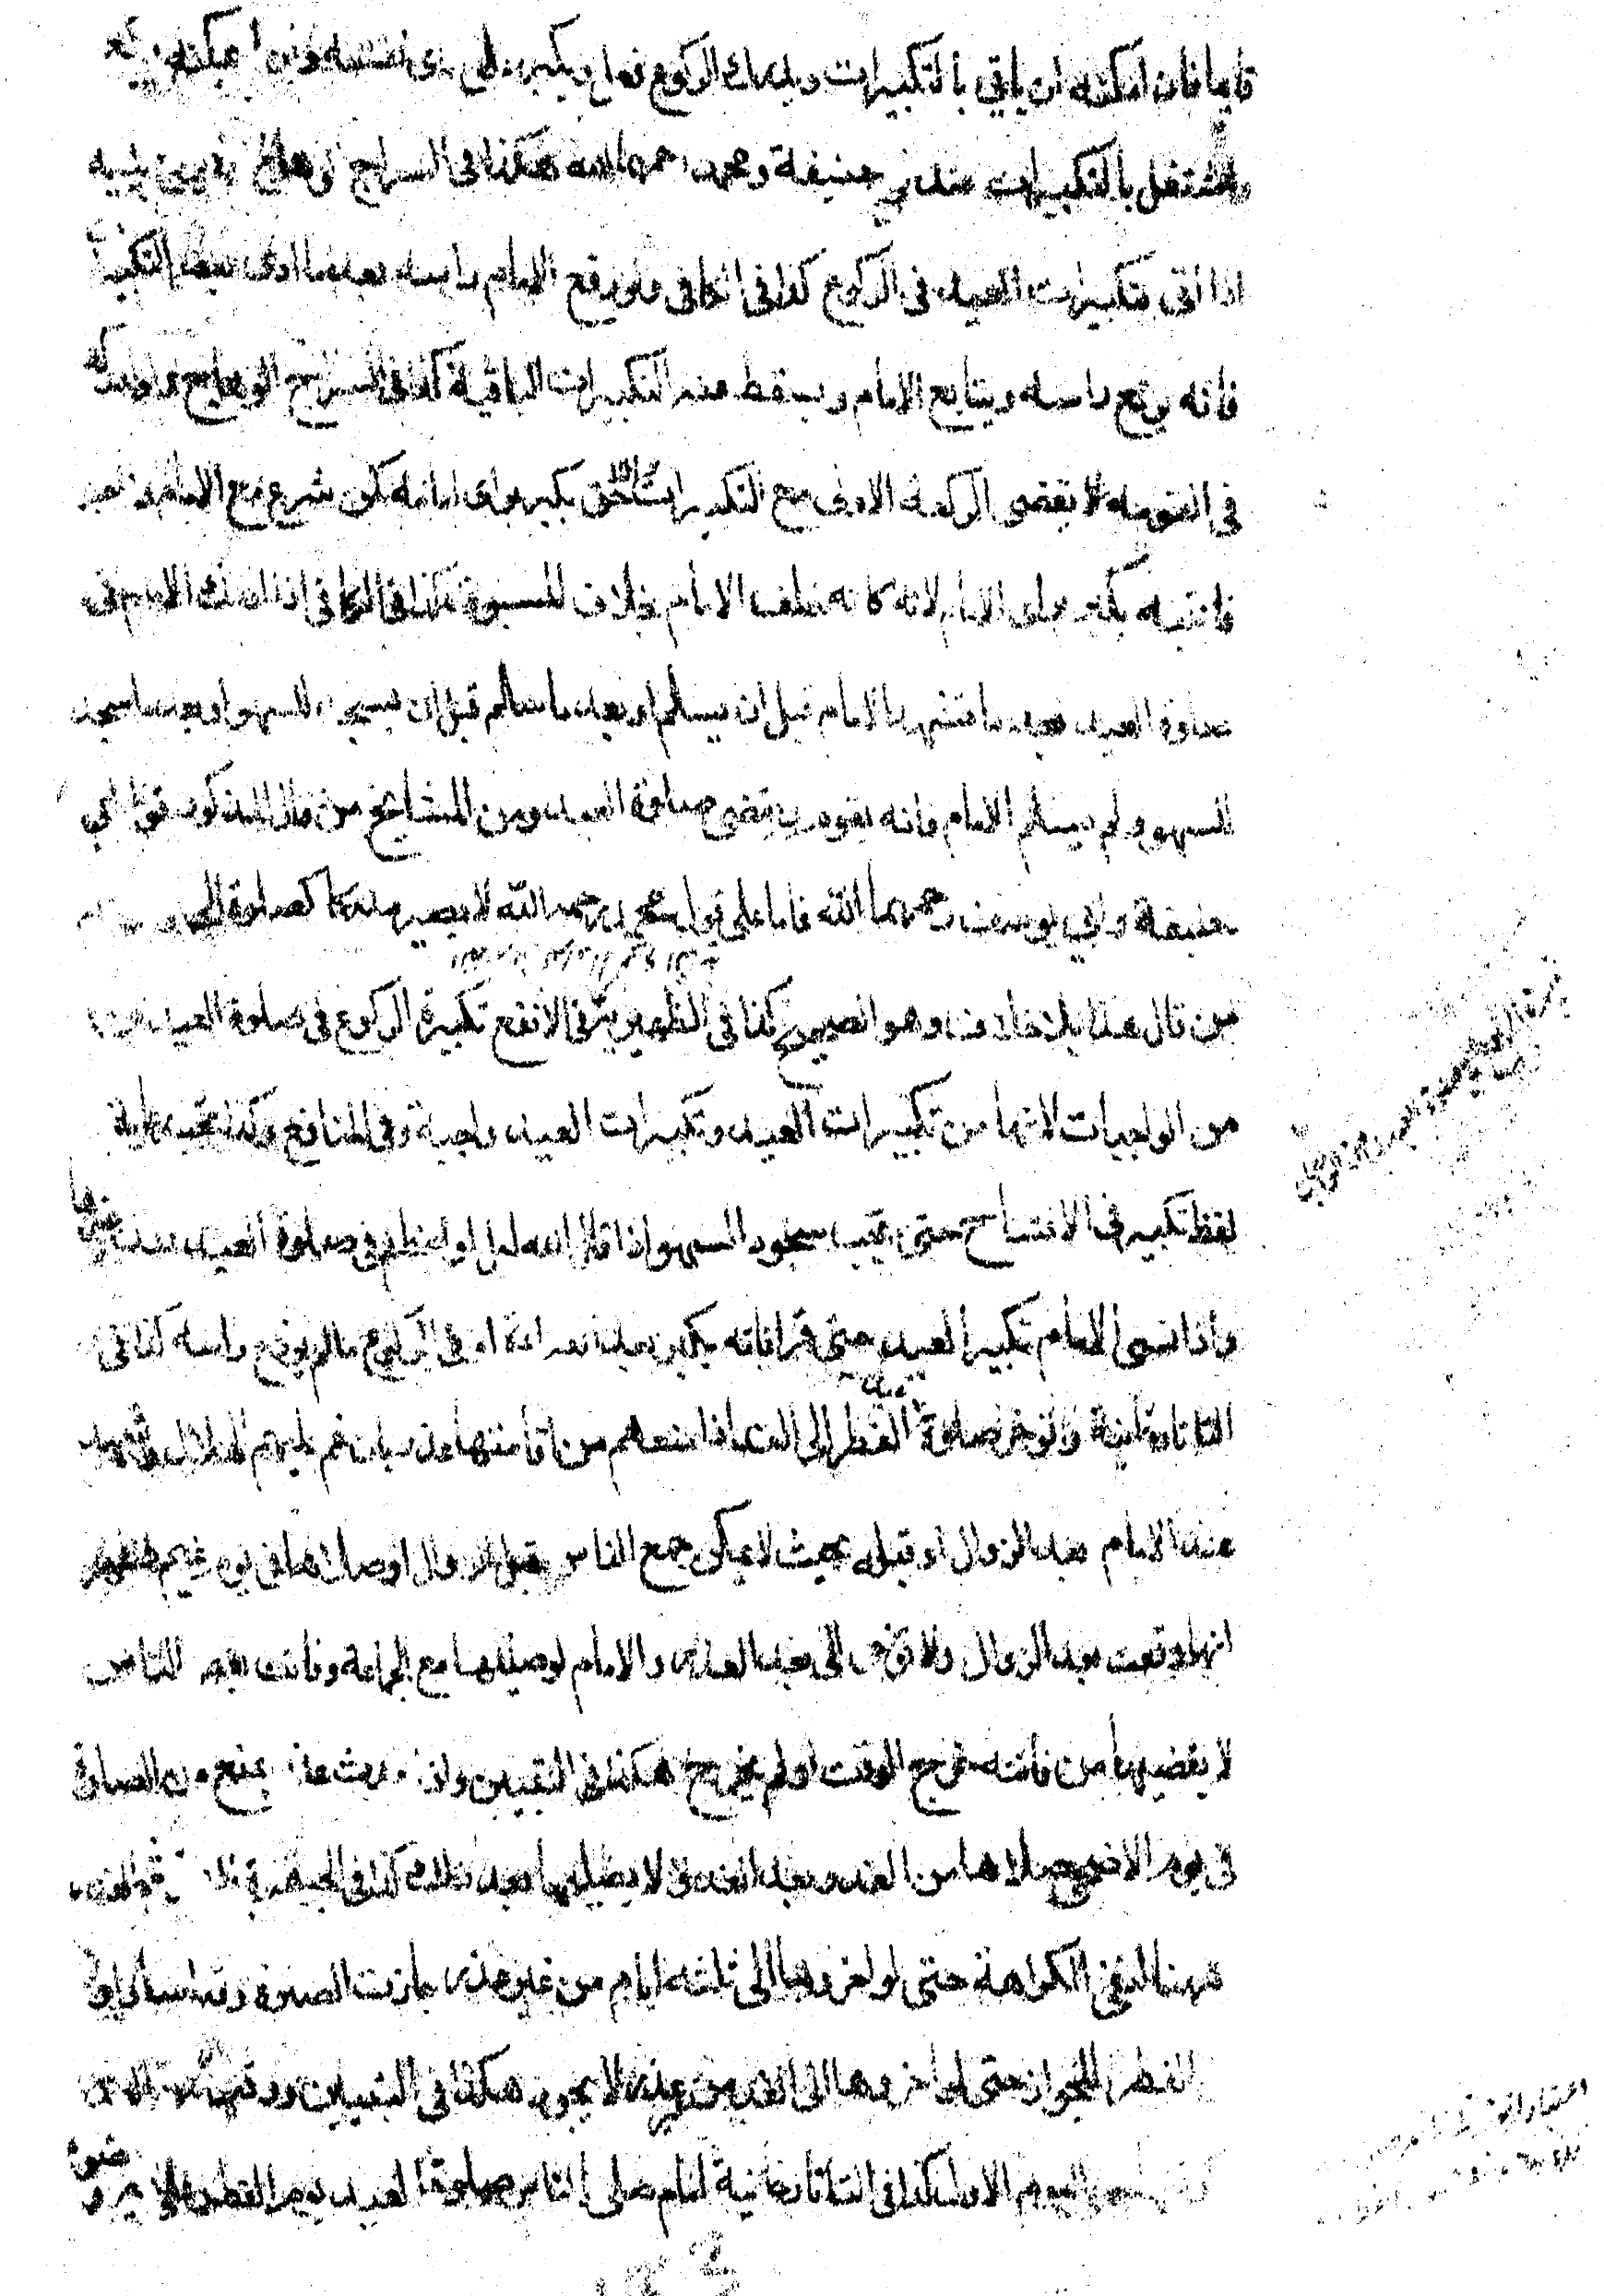 قايما فان امكنه ان ياتي بالتكبيرات ويدرك الركوع فعل ويكبر على راى نفسه وان لم يمكنه ركع
واشتغل بالتكبيرات عند ابي حنيفة ومحمد رحمهما الله هكذا في السراج الوهاج
اذا اتى بتكبيرات العيد في الركوع كذا في الكافي ولو رفع الامام راسه بعد ما ادى بعض التكبيرات
فانه يرفع راسه ويتابع الامام ويسقط عنه التكبيرات الباقية كذا في السراج الوهاج ولو ادركه
في القومة لا يقضي الركعة الاولى مع التكبيرات يكبر براى امامه كمن شرع مع الامام ونام
فانتبه يكبر براى الامام لانه كانه خلف الامام بخلاف المسبوق كذا في الكافي اذا ادرك الامام في
صلوة العيد بعد ما تشهد الامام قبل ان يسلم او بعد ما سلم قبل ان يسجد للسهو او بعد ما سجد
للسهو ولم يسلم الامام فانه يقوم ويقضي صلوة العيد ومن المشايخ من قال المذكور قول ابي
حنيفة وابي يوسف رحمهما الله فاما على قول محمد رحمه الله لا يصير مدركا كصلوة الجمعة
من قال هذا بلا خلاف وهو الصحيح كذا في الظهيرية وفي الانفع تكبيرة الركوع في صلوة العيد
من الواجبات لانها من تكبيرات العيد وتكبيرات العيد واجبة وفي المنافع وكذا تجب رعاية
لفظ تكبير في الافتتاح حتى يجب سجود السهو اذا قال الله اجل او اعظم في صلوة العيد
واذا نسي الامام تكبير العيد حتى قرا فانه يكبر بعد القراءة او في الركوع ما لم يرفع راسه كذا في
التاتارخانية وتوخر صلوة عيد الفطر الى الغد اذا منعهم من اقامتها عذر بان غم عليهم الهلال وشهد
عند الامام بعد الزوال او قبله بحيث لا يمكن جمع الناس قبل الزوال او صلاها في يوم غيم فظهر
انها وقعت بعد الزوال ولا توخر الى بعد الغد والامام لو صلاها مع الجماعة وفاتت بعض الناس
لا يقضيها من فاتته خرج الوقت او لم يخرج هكذا في التبيين وان حدث عذر يمنع من الصلوة
في يوم الاضحى صلاها من الغد وبعد الغد ولا يصليها بعد ذلك كذا في الجوهرة
ههنا لنفي الكراهة حتى لو اخروها الى ثلثة ايام من غير عذر جازت الصلوة وقد اساؤا وفي
الفطر للجواز حتى لو اخروها الى الغد من غير عذر لا يجوز هكذا في التبيين ووقتها
اليوم الاول كذا في التاتارخانية امام صلى بالناس صلوة العيد يوم الفطر على غير وضوء